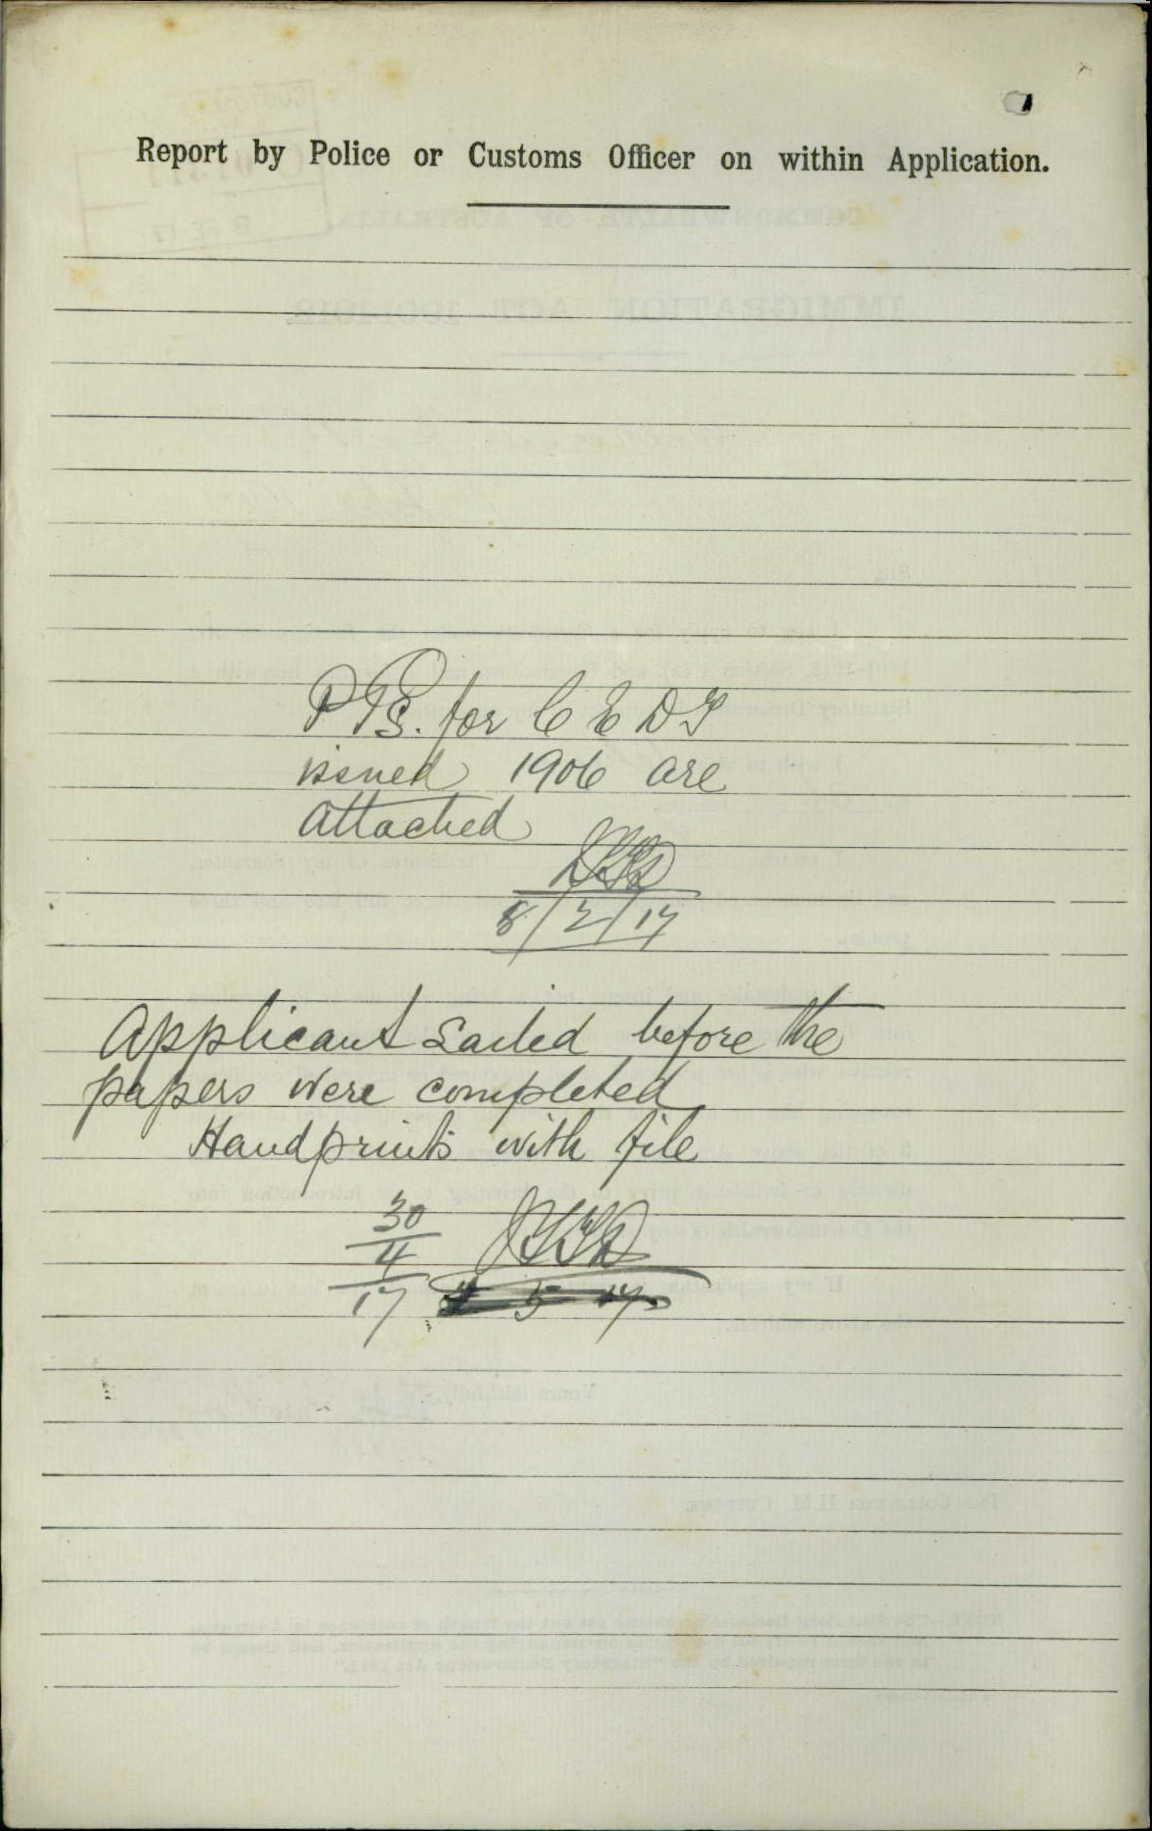 Report by Police or Customs Officer on within Application.
P Ps. for C E D T
issued 1906 are
attached
8/2/17
Applicant sailed before the
papers were completed
Handprints with file
30
4
17
5 17